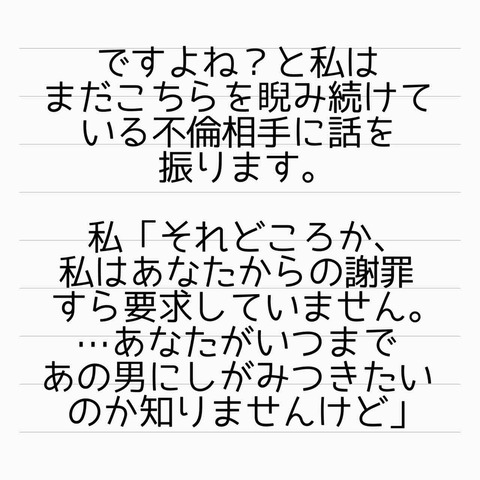 ですよね？と私は
まだこちらを睨み続けて
いる不倫相手に話を
振ります。
私「それどころか、
私はあなたからの謝罪
すら要求していません。
…あなたがいつまで
あの男にしがみつきたい
のか知りませんけど」